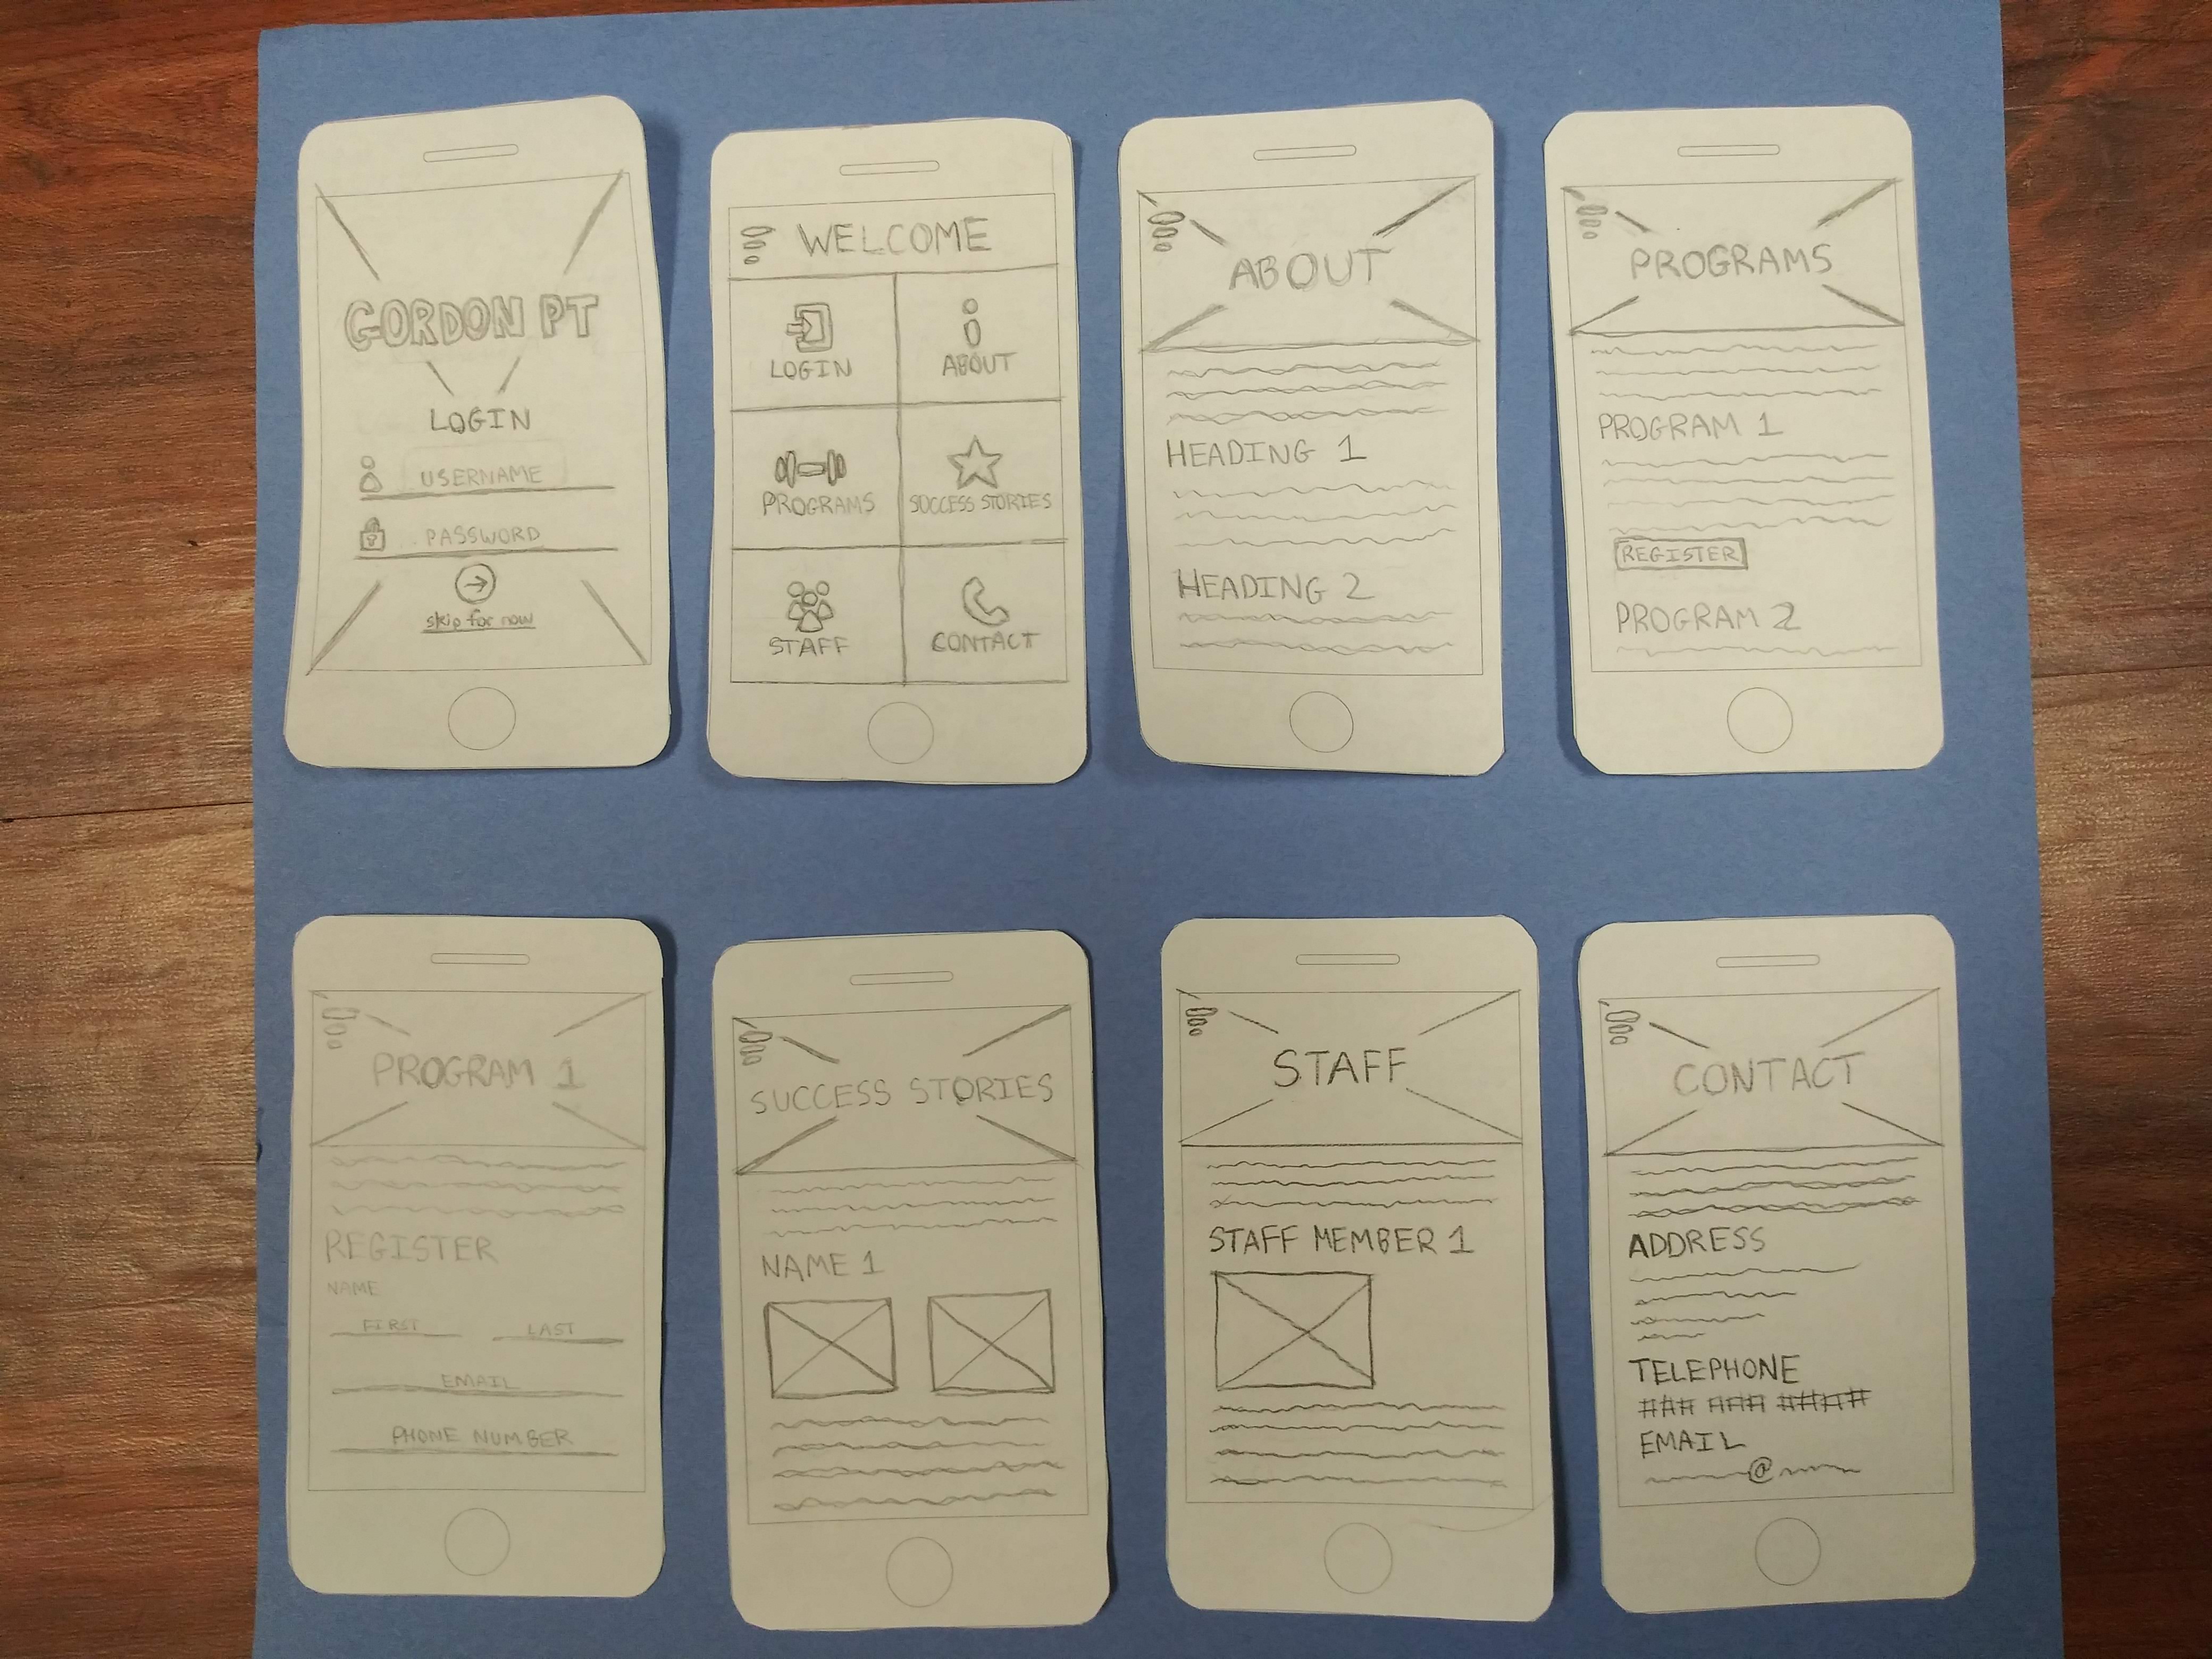 GORDON PT
LOGIN
USERNAME
PASSWORD
skip for now
WELCOME
LOGIN
ABOUT
PROGRAMS
SUCCESS STORIES
STAFF
CONTACT
ABOUT
HEADING 1
HEADING 2
PROGRAMS
PROGRAM 1
REGISTER
PROGRAM 2
PROGRAM 1
REGISTER
NAME
FIRST LAST
EMAIL
PHONE NUMBER
SUCCESS STORIES
NAME 1
STAFF
STAFF MEMBER 1
CONTACT
ADDRESS
TELEPHONE
### ### ####
EMAIL
@